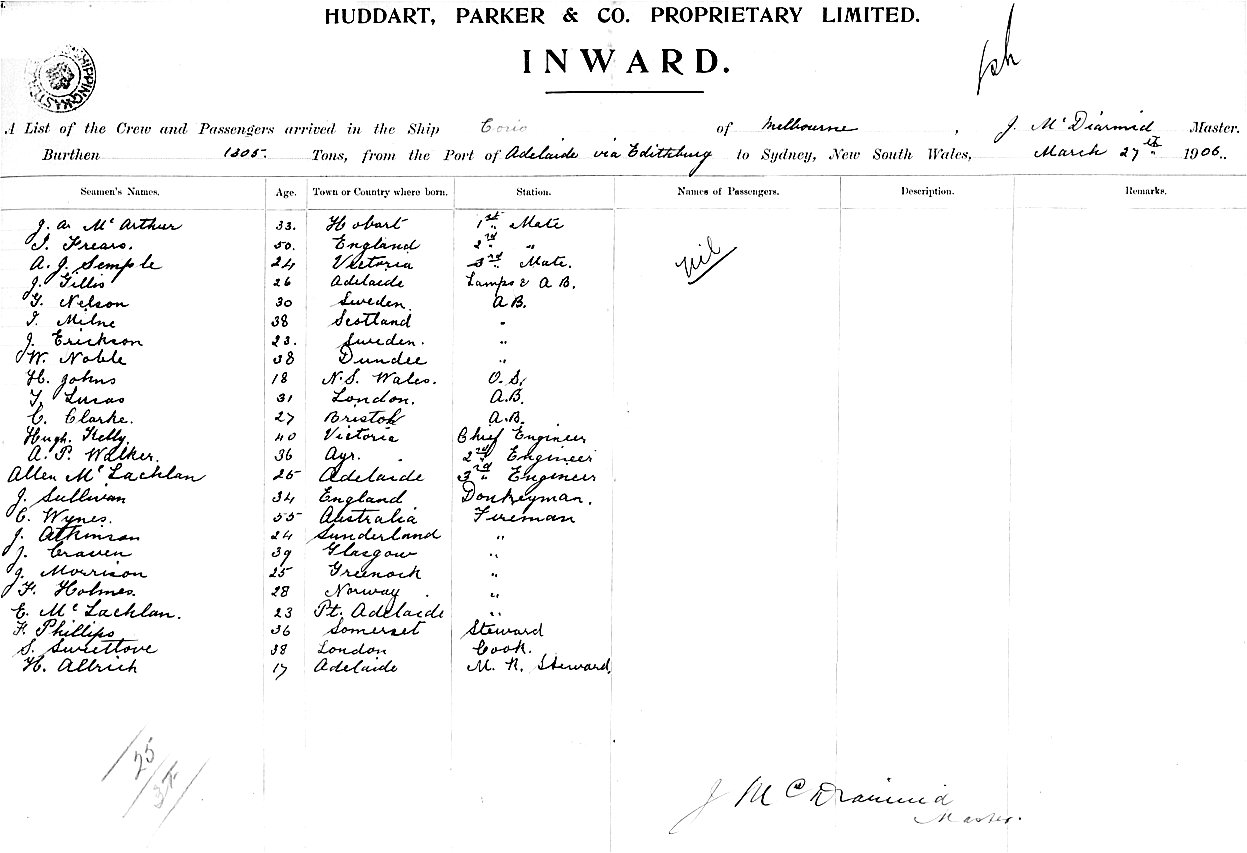 HUDDART, PARKER & CO. PROPRIETARY LIMITED.
INWARD.
SHIPPING MASTER
A List of the Crew and Passengers arrived in the Ship Corio of Melbourne, J. McDiarmid Master.
Burthen 1305 Tons, from the Port of Adelaide via Edithburg to Sydney, New South Wales, March 27th 1906.
Seamen's Names. Age. Town or Country where born. Station. Names of Passengers. Description. Remarks.
J. A. McArthur 33. Hobart 1st Mate
Frears. 50. England 2nd "
A. J. Semple 24 Victoria 3rd Mate.
nil
J. Gillis 26 Adelaide Lamps & A B.
Nelson 30 Sweden. A B.
Milne 38 Scotland "
J. Erickson 23. Sweden. "
W. Noble 38 Dundee "
H. Johns 18 N.S. Wales. O.S.
Lucas 31 London. A.B.
C. Clarke. 27 Bristol A.B.
Hugh Kelly. 40 Victoria Chief Engineer
A. P. Walker. 36 Ayr. 2nd Engineer
Allen McLachlan 25 Adelaide 3rd Engineer
J. Sullivan 34 England Donkeyman.
C. Wynes. 55 Australia Fireman
J. Atkinson 24 Sunderland "
J. Craven 39 Glasgow "
J. Morrison 25 Greenock "
F. Holmes. 28 Norway. "
E. McLachlan. 23 Pt. Adelaide "
F. Phillips 36 Somerset Steward
S. Sweetlove 38 London Cook.
H. Allrich 17 Adelaide M. R. Steward
/25/
J McDiarmid
Master.